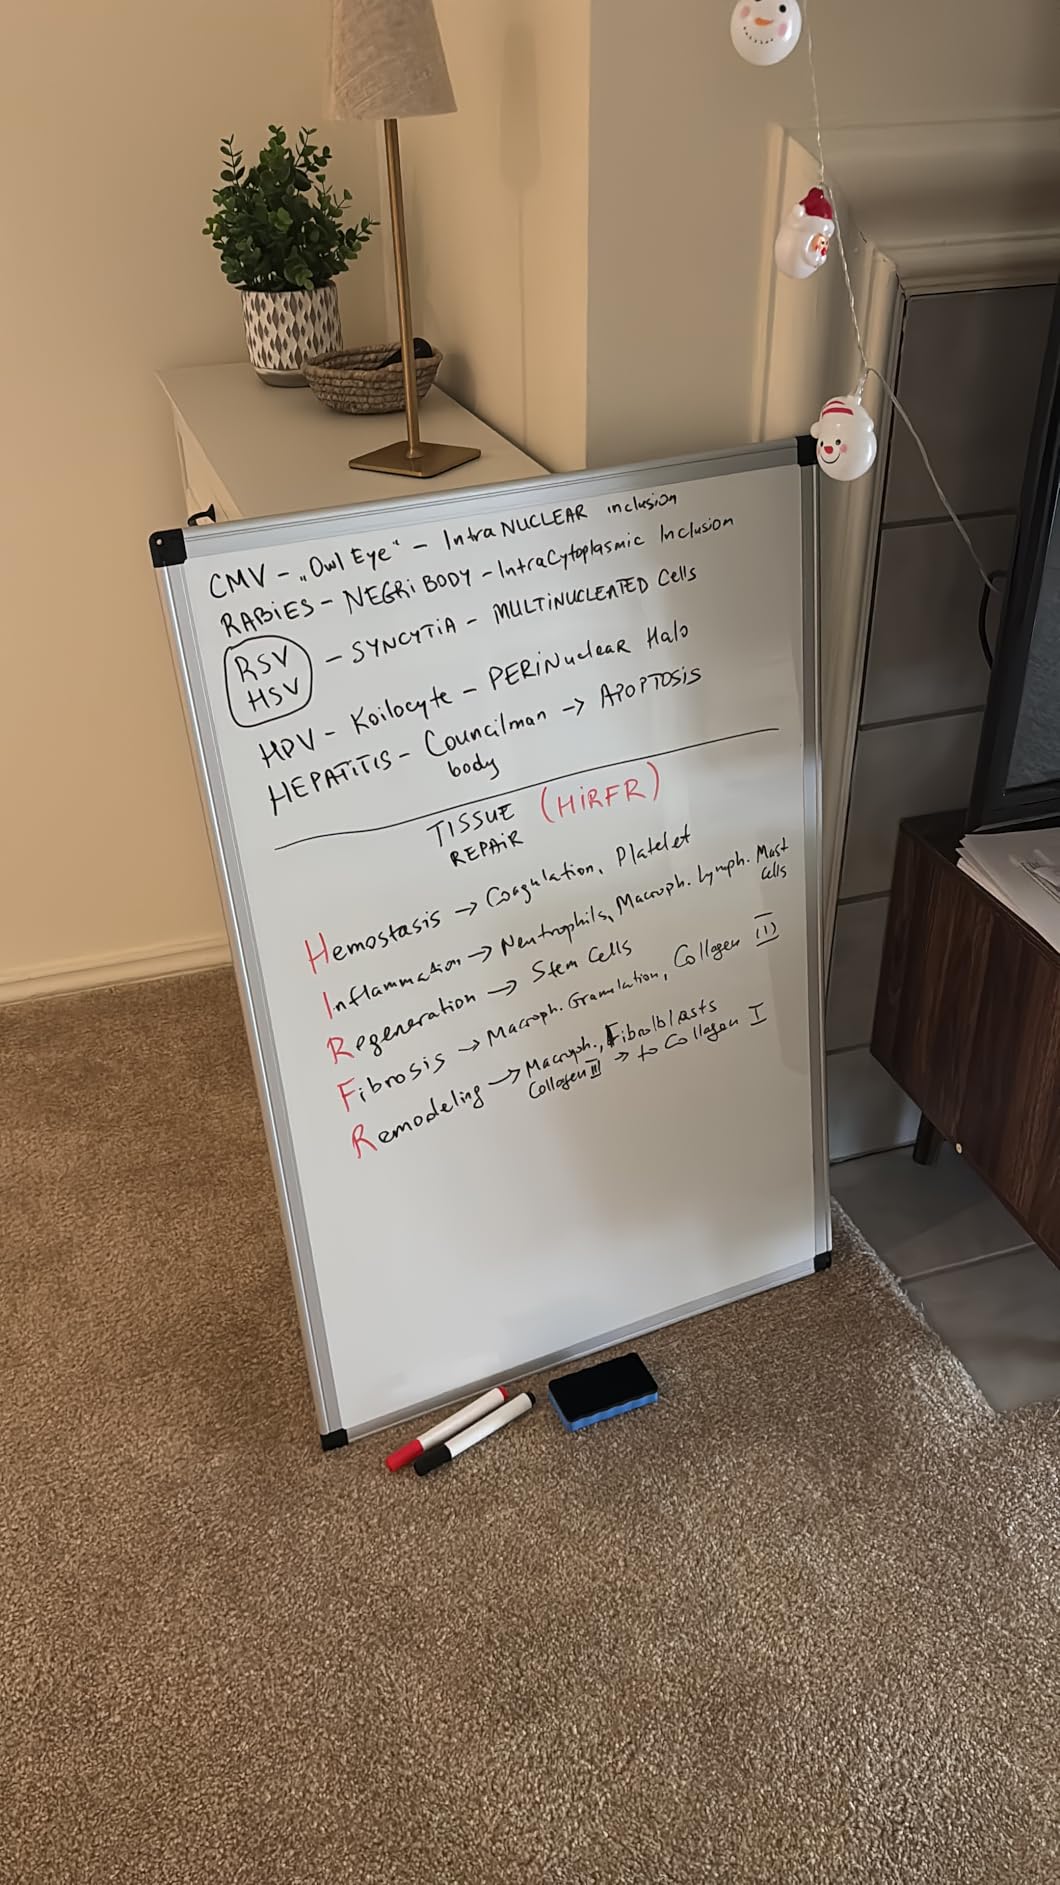 CMV - „Owl Eye" - IntraNUCLEAR inclusion
RABiES - NEGRi BODY - IntraCytoplasmic Inclusion
RSV
HSV - SYNCYTiA - MULTiNUCLEATED Cells
HPV - Koilocyte - PERiNuclear Halo
HEPATiTiS - Councilman → APOPTOSiS
body
TISSUE (HiRFR)
REPAiR
Hemostasis → Coagulation, Platelet
Inflammation → Neutrophils, Macroph. Lymph. Mast
Cells
Regeneration → Stem Cells
Fibrosis → Macroph. Granulation, Collagen III
Remodeling → Macroph., Fibrolblasts
Collagen III → to Collagen I